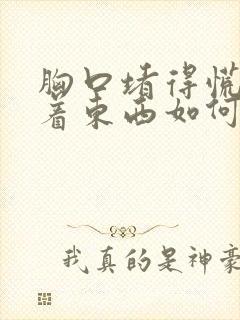 胸口堵得慌
着东西如何
我真的是神豪